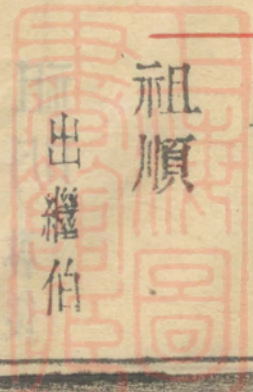 祖順
出繼伯